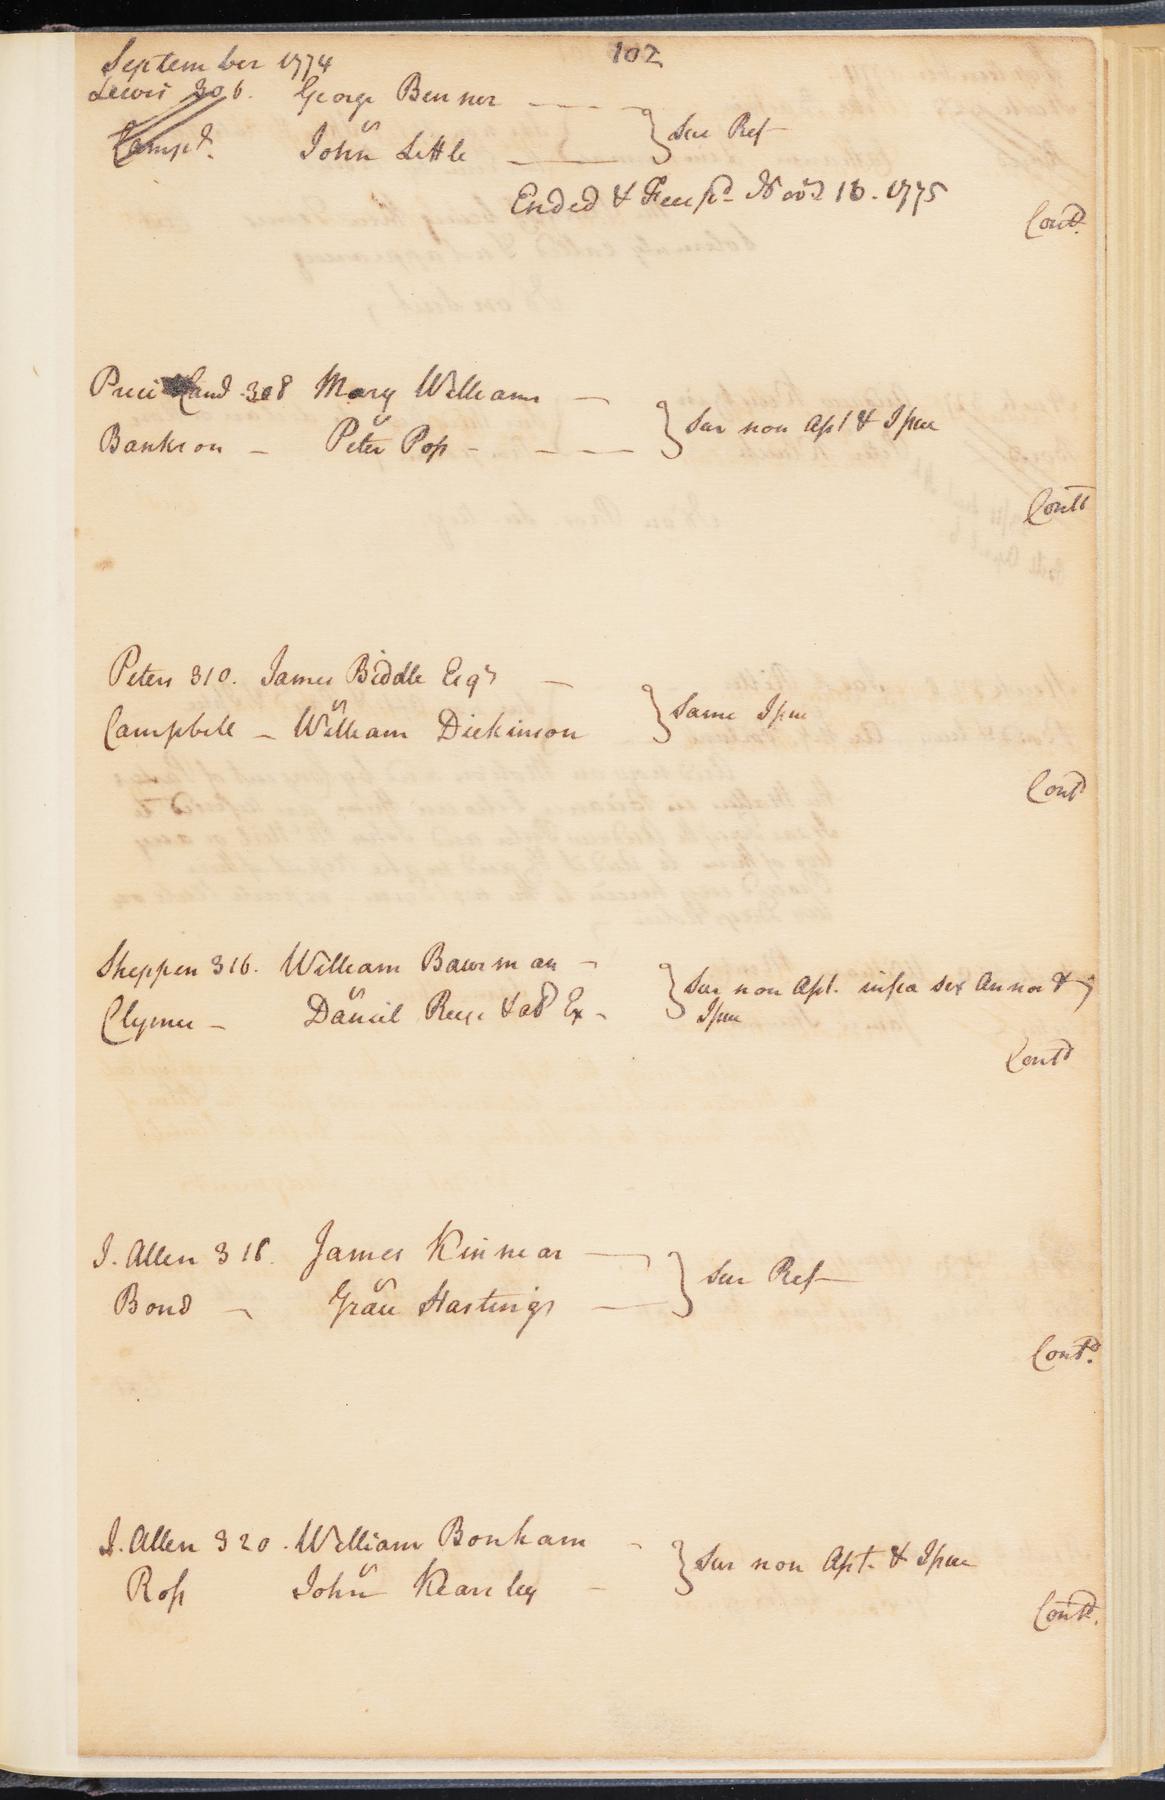 September 1774 102
Lewis 306. George Benner
vs
Camp.l. John Little } Sur Ref
Ended & Fee p.d Nov.r 16. 1775
Cont.d
Price 308 Mary Williams
vs
Bankson Peter Pop } Sur non Ap.t & Issue
Cont.d
Peters 310. James Biddle Esq.r
vs
Campbell William Dickinson } Same Issue
Cont.d
Sheppen 316. William Bawsman
vs
Clymer Daniel & al Ex } Sur non Ap.t. infra sex Annos &
Issue
Cont.d
J. Allen 318. James Kinnear
vs
Bond Hastings } Sur Ref
Cont.d
J. Allen 320. William Bonham
vs
Ross John Kearsley } Sur non Ap.t. & Issue
Cont.d